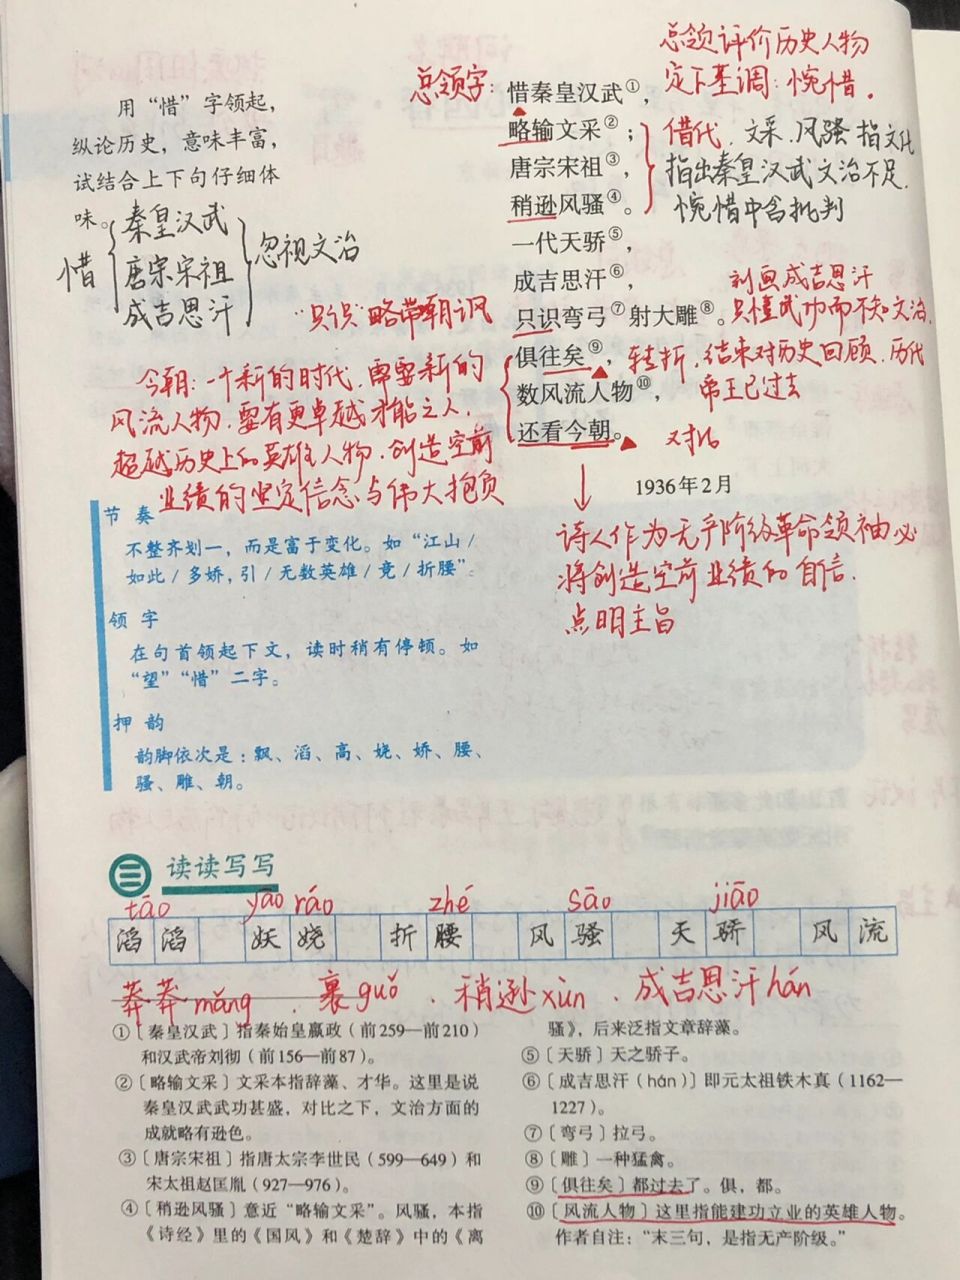 总领评价历史人物
定下基调：惋惜。
总领字：惜秦皇汉武①，
略输文采②；
唐宗宋祖③，
稍逊风骚④。
一代天骄⑤，
成吉思汗⑥，
只识弯弓⑦射大雕⑧。
俱往矣⑨，
数风流人物⑩，
还看今朝。
1936年2月
借代，文采、风骚指文化
指出秦皇汉武文治不足.
惋惜中含批判
刻画成吉思汗
只懂武功而不知文治.
转折，结束对历史回顾，历代
帝王已过去
对比
诗人作为无产阶级革命领袖必
将创造空前业绩的自信.
点明主旨
用“惜”字领起，
纵论历史，意味丰富，
试结合上下句仔细体
味。
惜
秦皇汉武
唐宗宋祖
成吉思汗
忽视文治
“只识”略带嘲讽
今朝：一个新的时代，需要新的
风流人物，要有更卓越才能之人，
超越历史上的英雄人物，创造空前
业绩的坚定信念与伟大抱负
节奏
不整齐划一，而是富于变化。如“江山/
如此/多娇，引/无数英雄/竞/折腰”。
领字
在句首领起下文，读时稍有停顿。如
“望”“惜”二字。
押韵
韵脚依次是：飘、滔、高、娆、娇、腰、
骚、雕、朝。
三 读读写写
tāo yāo ráo zhé sāo jiāo
滔滔 妖娆 折腰 风骚 天骄 风流
莽莽mǎng、裹guǒ、稍逊xùn、成吉思汗hán
①〔秦皇汉武〕指秦始皇嬴政（前259—前210）
和汉武帝刘彻（前156—前87）。
②〔略输文采〕文采本指辞藻、才华。这里是说
秦皇汉武武功甚盛，对比之下，文治方面的
成就略有逊色。
③〔唐宗宋祖〕指唐太宗李世民（599—649）和
宋太祖赵匡胤（927—976）。
④〔稍逊风骚〕意近“略输文采”。风骚，本指
《诗经》里的《国风》和《楚辞》中的《离
骚》，后来泛指文章辞藻。
⑤〔天骄〕天之骄子。
⑥〔成吉思汗（hán）〕即元太祖铁木真（1162—
1227）。
⑦〔弯弓〕拉弓。
⑧〔雕〕一种猛禽。
⑨〔俱往矣〕都过去了。俱，都。
⑩〔风流人物〕这里指能建功立业的英雄人物。
作者自注：“末三句，是指无产阶级。”